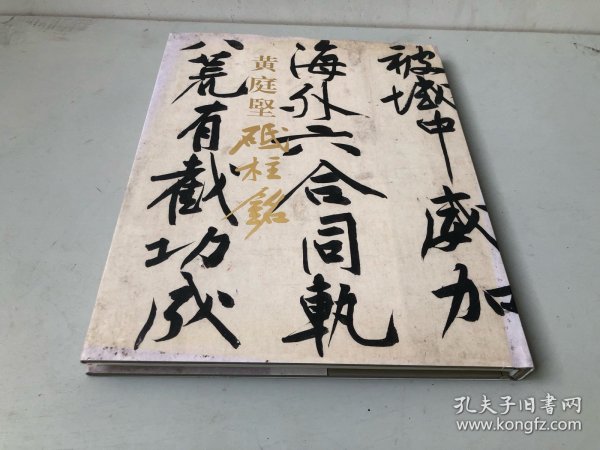 被域中威加
海外六合同軌
八荒有截功成
黄庭堅
砥柱銘
孔夫子旧书网
www.kongfz.com